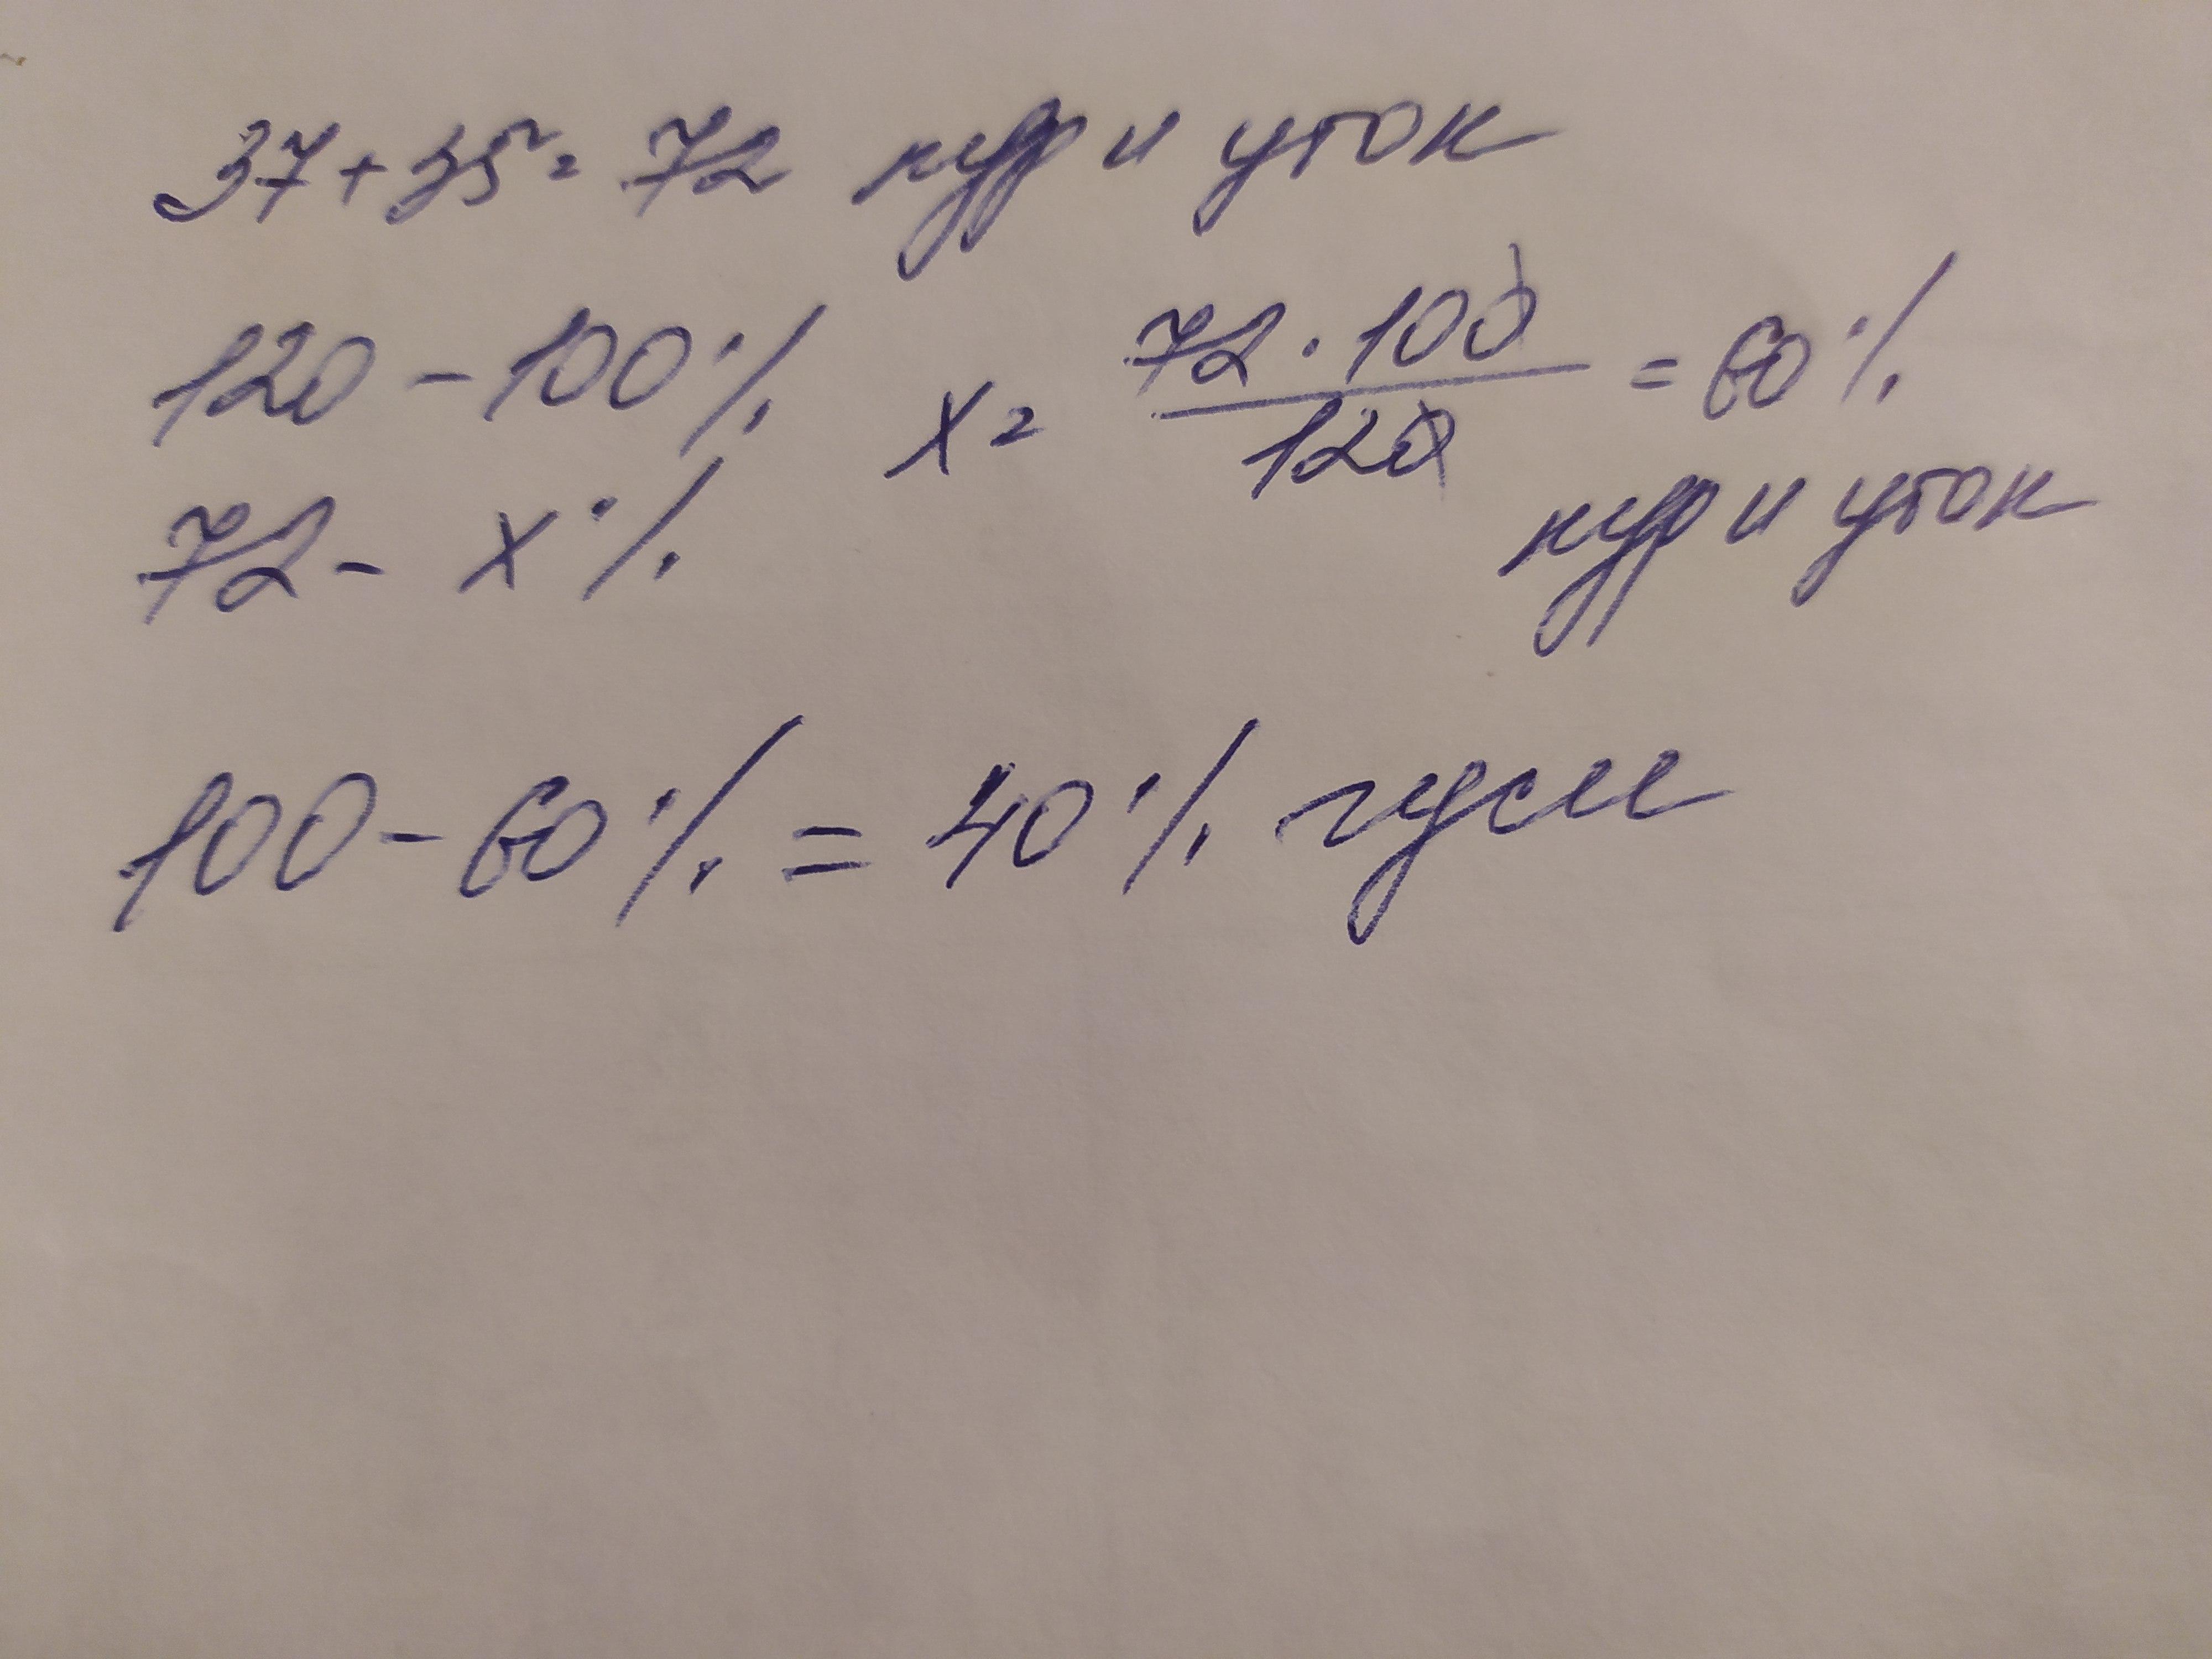 37+35=72 кур и уток
120-100% x= 72·100/120 =60%
72- x% кур и уток
100-60%=40% гуси